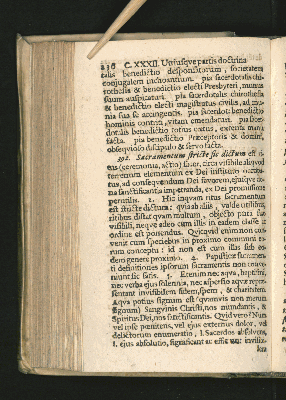 236 C. XXXII. Utriusque partis doctrina
talis benedictio desponsatorum, societatem
conjugalem inchoantium. pia sacerdotalis chi-
rothesia & benedictio electi Presbyteri, munus
suum auspicaturi. pia sacerdotalis chirothesia
& benedictio electi magistratus civilis, ad mu-
nia sua se accingentis. pia sacerdotis benedictio
hominis contriti, vitam emendantis. pia sacer-
dotalis benedictio totius cœtus, externa manu
facta. pia benedictio Præceptoris & domini,
obsequioso discipulo & servo facta.
392. Sacramentum stricte sic dictum est ri-
tus (ceremonia, actio) sacer, circa visibile aliquod
terrenum elementum ex Dei instituto
tus, ad consequendum Dei favorem, ejusque
nam sanctificantis impetranda, ex Dei promissione
peculis. 2. Hic inquam ritus Sacramentum
est stricte dictum: quia ab aliis, valde
ritibus distat quam multum, objecto puta suo
visibili, neque adeo cum illis in eadem classe &
ordine est ponendus. Quicquid enim non con-
venit cum speciebus in proximo communi ea-
rum conceptu: id non est cum illas sub eo-
dem genere proximo. 4. Papisticæ sacramen-
ti definitiones ipsorum sacramentis non conve-
niunt sic satis. 5. Etenim nec aqua, baptismi,
nec verba ejus solennia, nec aspersio aquæ repræ-
sentant invisibilem fidem, spem, & charitatem.
Aqua potius signum est (quamvis non merum
signum) Sanguinis Christi, nos mundantis, &
Spiritus Dei, nos sanctificantis. Quid vero? Num
vel ipse pœnitens, vel ejus externus dolor, vel
delictorum enumeratio, l. Sacerdos absolvens,
l. ejus absolutio, significant ac effic